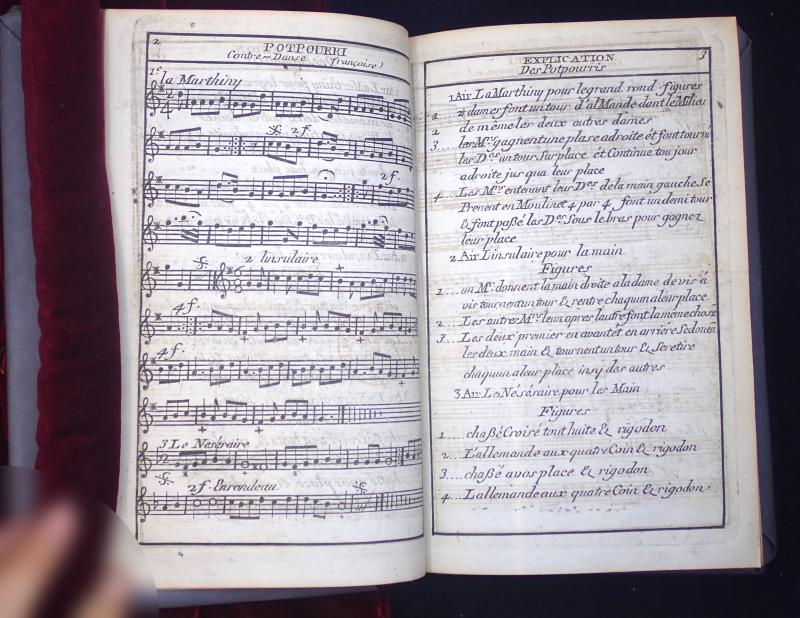 2
POTPOURI
Contre-Danse françoise)
1.e la Marthiny
2 f.
2 f.
2 linsulaire
4 f.
4 f.
3 Le Neséraire
2 f. Enrondeau
3
EXPLICATION
Des Potpourris
1 Air La Marthiny pour le grand rond figures
1.... 2 dames font un tour d'alMande dant le Milieu
2 de même les deux autres dames
3... les Mrs gagnent une plase adroite ét font tourné
les Des un tour Sur place ét Continue tou jour
adroite jus qua leur place
4... Les Mrs entenant leur Des de la main gauche Se
Prenent en Moulinet 4 par 4 font un demi tour
& font paßé les Des Sous le bras pour gagnez
leur place
2 Air L'insulaire pour la main
Figures
1.... un Mr donnent la main droite a la dame de vis á
vis tournent un tour & rentre chaquun a leur place
2.... Les autres Mrs leun apres lautre font la même chose
3... Les deux premier en avant ét en arriére Se donent
les deux main & tournent un tour & Se retire
chaquun a leur place insy des autres
3 Air Le Nésésaire pour les Main
Figures
1.... chaßé Croisé tout huite & rigodon
2.... L'allemande aux quatre Coin & rigodon
3.... chaßé a vos place & rigodon
4... L'allemande aux quatre Coin & rigodon